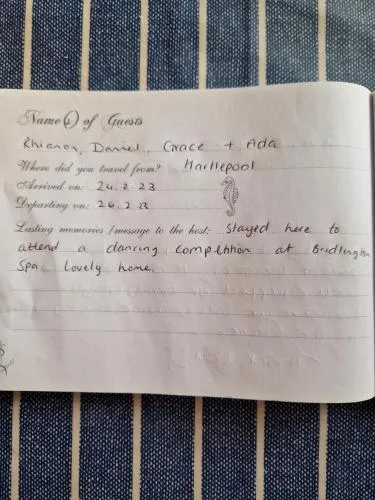 Name(s) of Guests
Rhianon, Daniel, Grace + Ada
Where did you travel from? Hartlepool
Arrived on: 24.2.23
Departing on: 26.2.23
Lasting memories/message to the host: Stayed here to
attend a dancing competition at Bridlington
Spa. Lovely home.